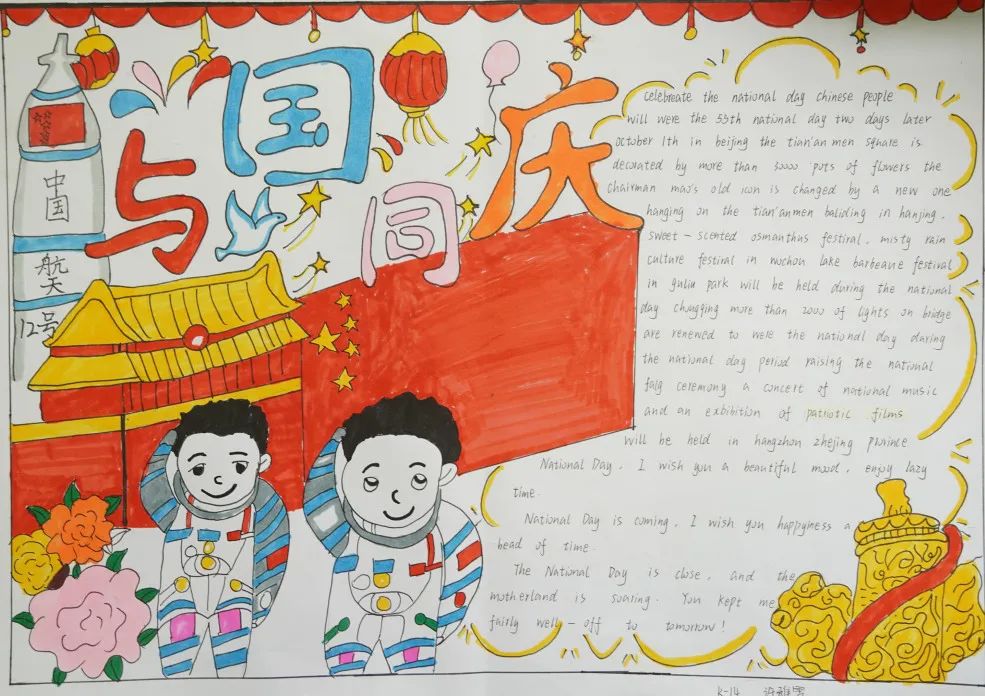 与国同庆
中国
航天
12号
celebreate the national day chinese people
will were the 55th national day two days later
october 1th in beijing the tian'an men square is
decorated by more than 30000 pots of flowers the
chairman mao's old icon is changed by a new one
hanging on the tian'anmen baliding in hanjing.
sweet-scented osmanthus festival. misty rain
culture festival in wuchou lake barbeaue festival
in guliu park will be held during the national
day chugqing more than 2000 of lights on bridge
are renewed to were the national day daring
the national day period raising the national
falg ceremony a concert of national music
and an exbibition of patriotic films
will be held in hangzhou zhejing province
National Day. I wish you a beautiful mood. enjoy lazy
time.
National Day is coming. I wish you happyiness a
head of time.
The National Day is close. and the
motherland is soaring. You kept me
fairly well-off to tomorrow!
K-14